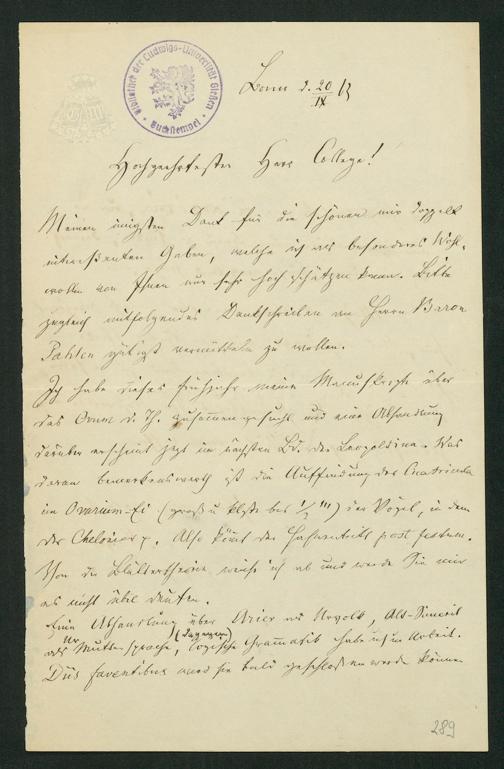 Bibliothek der Ludwigs-Universität Gießen
Buchstempel
Bonn d. 20/IX
Hochgeehrtester Herr College!
Meinen innigsten Dank für die schönen mir doppelt
interessanten Gaben, welche ich als besonderes Wohl-
wollen von Ihnen nur sehr hoch schätzen kann. Bitte
zugleich mitfolgendes Dankschreiben an Herrn Baron
Pahlen gütigst vermitteln zu wollen.
Ich habe dieses Frühjahr meine Manuskripte über
das Ovum d. Th. zusammengesucht und eine Abhandlung
darüber erscheint jetzt im nächsten Bd. der Leopoldina. Was
daran bemerkenswerth ist die Auffindung der Cicatricula
im Ovarium-Ei (bis 1/2 ''') der Vögel, in dem
der Chelonier p. Also kömt der post festum.
Von der Blättertheorie weiche ich ab und werden Sie mir
es nicht übel deuten.
Eine Abhandlung über Arier als Urvolk, Alt-
als Muttersprache, logische Grammatik habe ich in Arbeit.
Diis faventibus wird sie bald geschlossen werden können
289